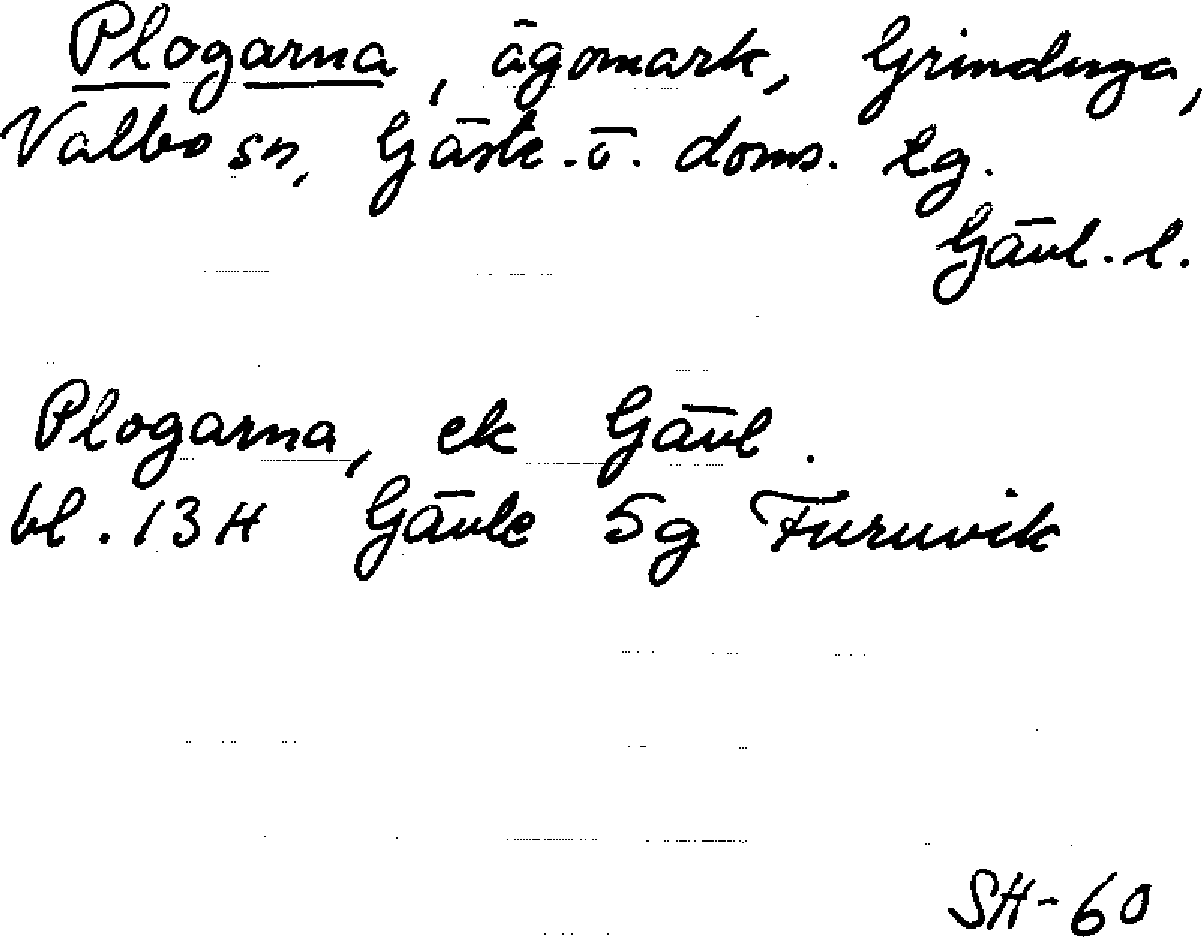 Plogarna, ägomark, Grinduga,
Valbo sn, Gästr. ö. doms. lg.
Gävl. l.
Plogarna, ek Gävl.
bl. 13H Gävle 5g Furuvik
SH-60